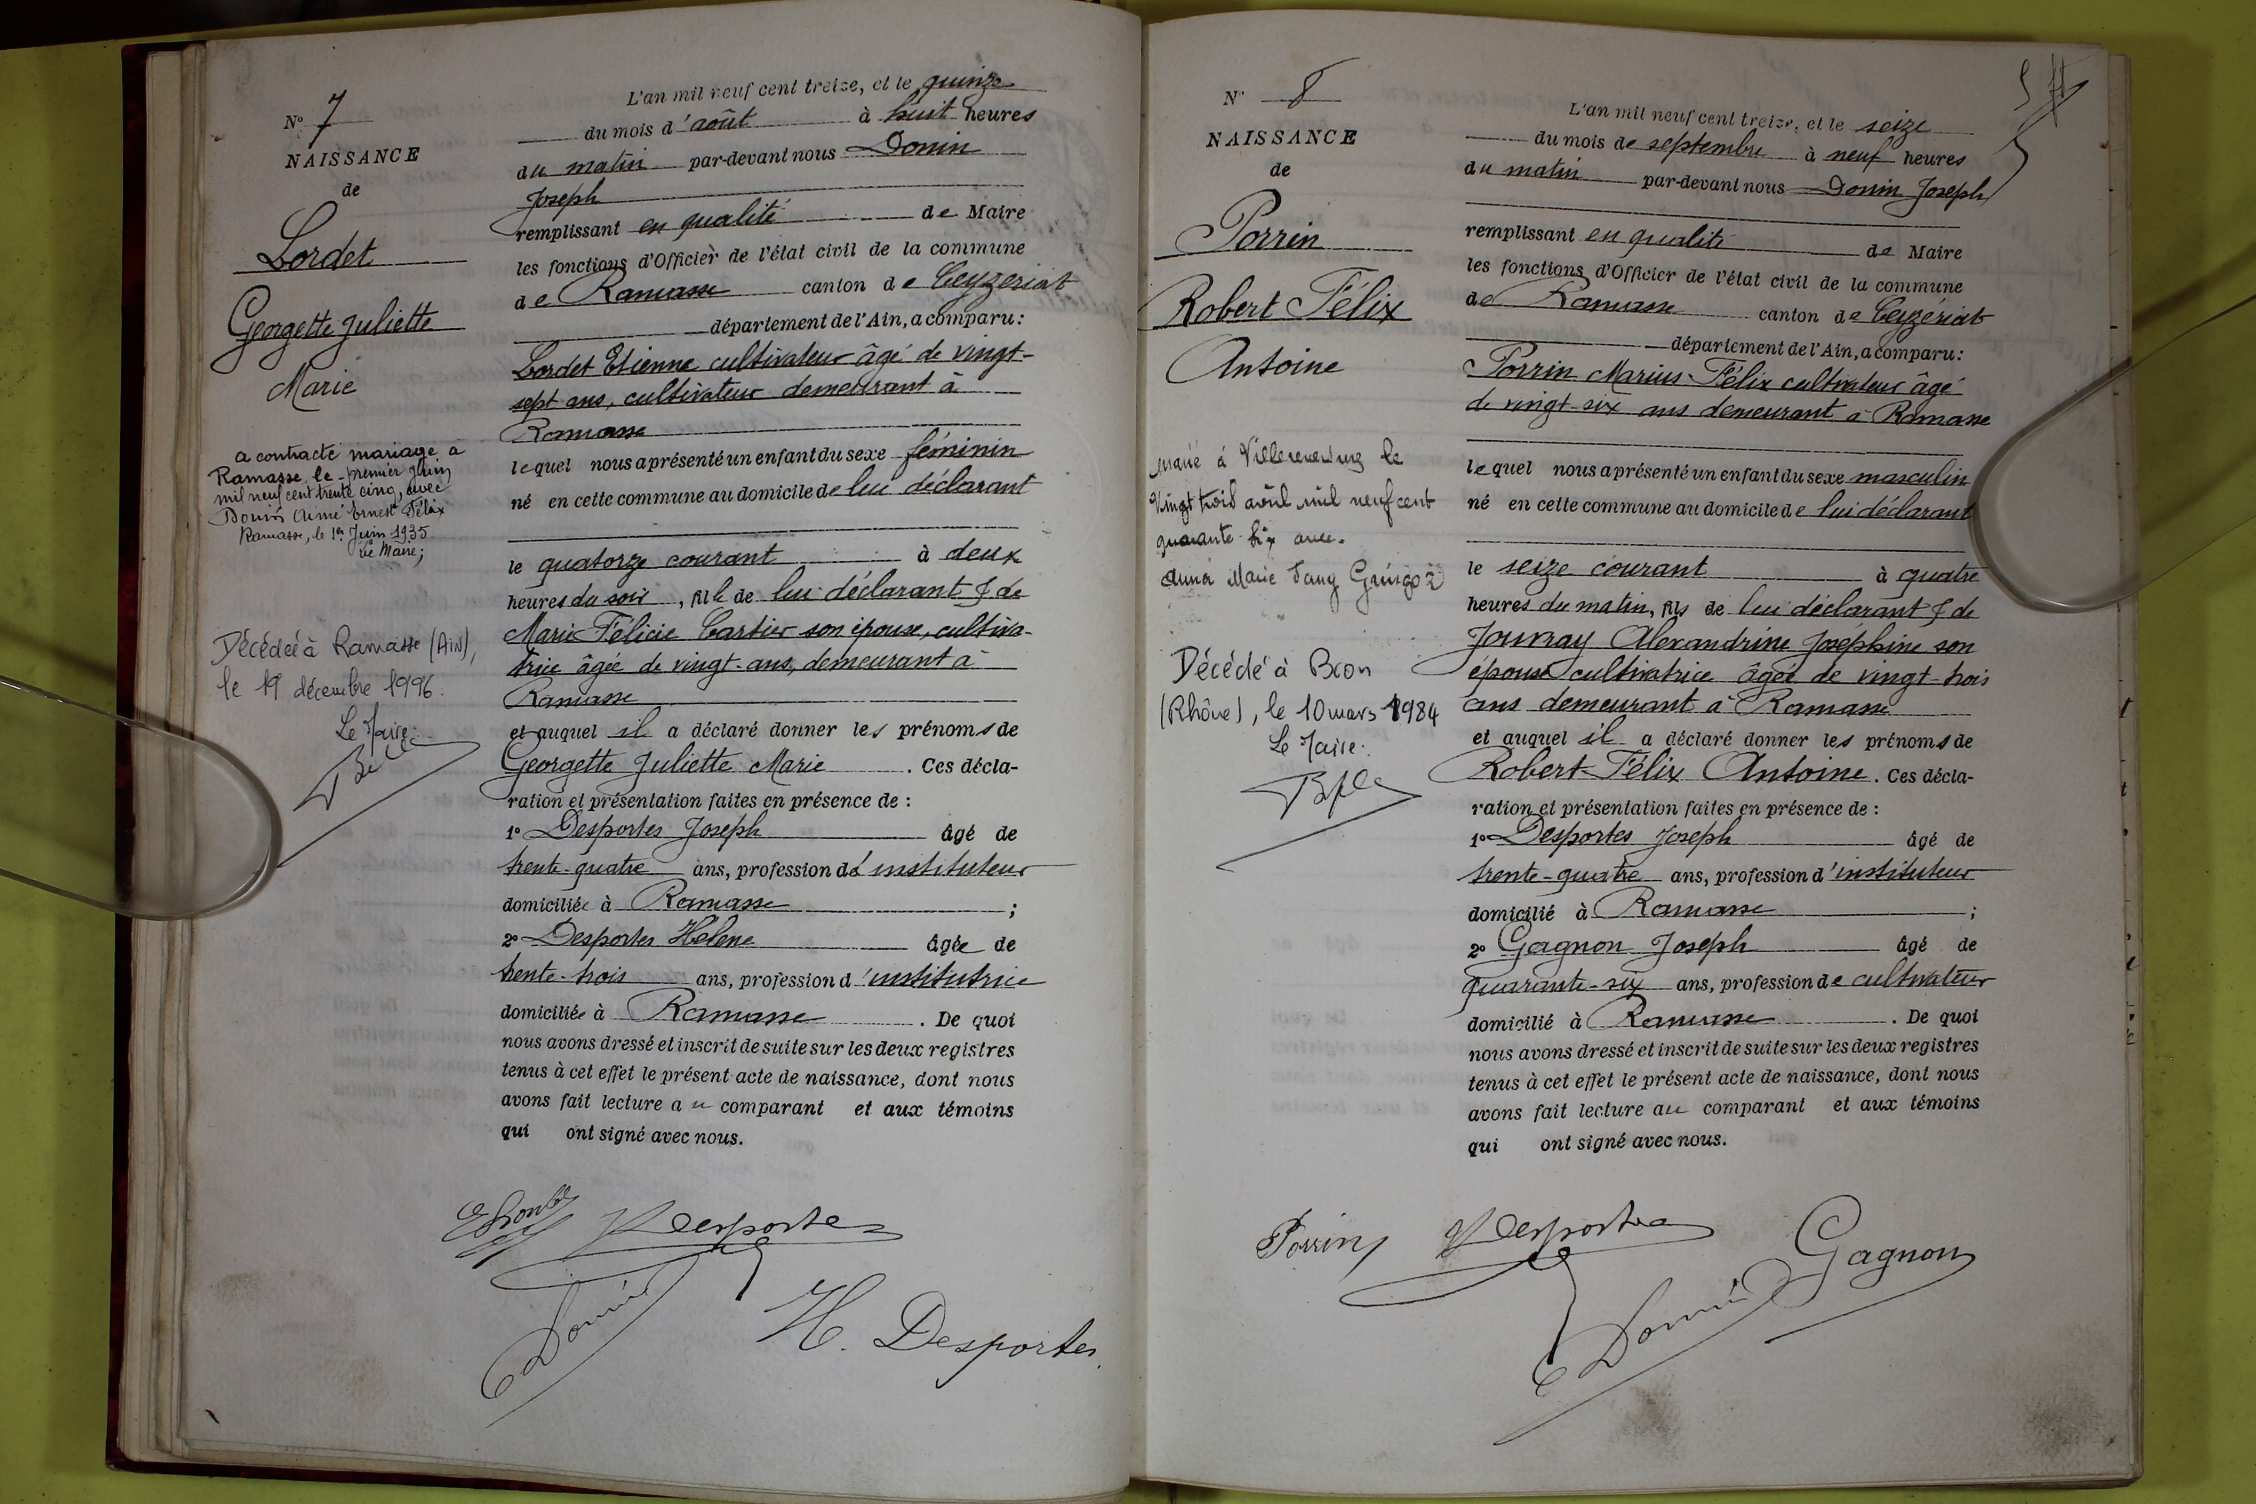 N° 7
NAISSANCE
de
Lordet
Georgette Juliette
Marie
a contracté mariage à
Ramasse, le premier Juin
mil neuf cent trente cinq, avec
Donin Aimé Ernest Félix
Ramasse, le 1er Juin 1935
Le Maire;
Décédée à Ramasse (Ain),
le 19 décembre 1996.
Le Maire:
L'an mil neuf cent treize, et le quinze
du mois d'août à huit heures
du matin par-devant nous Donin
Joseph
remplissant en qualité de Maire
les fonctions d'Officier de l'état civil de la commune
de Ramasse canton de Ceyzeriat
département de l'Ain, a comparu:
Lordet Etienne cultivateur âgé de vingt-
sept ans, cultivateur demeurant à
Ramasse
lequel nous a présenté un enfant du sexe féminin
né en cette commune au domicile de lui déclarant
le quatorze courant à deux
heures du soir, fille de lui déclarant & de
Marie Félicie Cartier son épouse, cultiva-
trice âgée de vingt-ans, demeurant à
Ramasse
et auquel il a déclaré donner les prénoms de
Georgette Juliette Marie. Ces décla-
ration et présentation faites en présence de :
1° Desportes Joseph âgé de
trente-quatre ans, profession d'instituteur
domiciliée à Ramasse ;
2° Desportes Helene âgée de
trente-trois ans, profession d'institutrice
domiciliée à Ramasse. De quoi
nous avons dressé et inscrit de suite sur les deux registres
tenus à cet effet le présent acte de naissance, dont nous
avons fait lecture au comparant et aux témoins
qui ont signé avec nous.
Desportes
Donin
H. Desportes
N° 8
NAISSANCE
de
Porrin
Robert Félix
Antoine
marié à Villereversure le
vingt trois avril mil neuf cent
quarante six avec
Anna Marie
Décédé à Bron
(Rhône), le 10 mars 1984
Le Maire:
L'an mil neuf cent treize, et le seize
du mois de septembre à neuf heures
du matin par-devant nous Donin Joseph
remplissant en qualité de Maire
les fonctions d'Officier de l'état civil de la commune
de Ramasse canton de Ceyzériat
département de l'Ain, a comparu:
Porrin Marius-Félix cultivateur âgé
de vingt-six ans demeurant à Ramasse
lequel nous a présenté un enfant du sexe masculin
né en cette commune au domicile de lui déclarant
le seize courant à quatre
heures du matin, fils de lui déclarant & de
Jouvray Alexandrine Joséphine son
épouse cultivatrice âgée de vingt-trois
ans demeurant à Ramasse
et auquel il a déclaré donner les prénoms de
Robert Félix Antoine. Ces décla-
ration et présentation faites en présence de :
1° Desportes Joseph âgé de
trente-quatre ans, profession d'instituteur
domicilié à Ramasse ;
2° Gagnon Joseph âgé de
quarante-six ans, profession de cultivateur
domicilié à Ramasse. De quoi
nous avons dressé et inscrit de suite sur les deux registres
tenus à cet effet le présent acte de naissance, dont nous
avons fait lecture au comparant et aux témoins
qui ont signé avec nous.
Porrin Desportes Gagnon
Donin